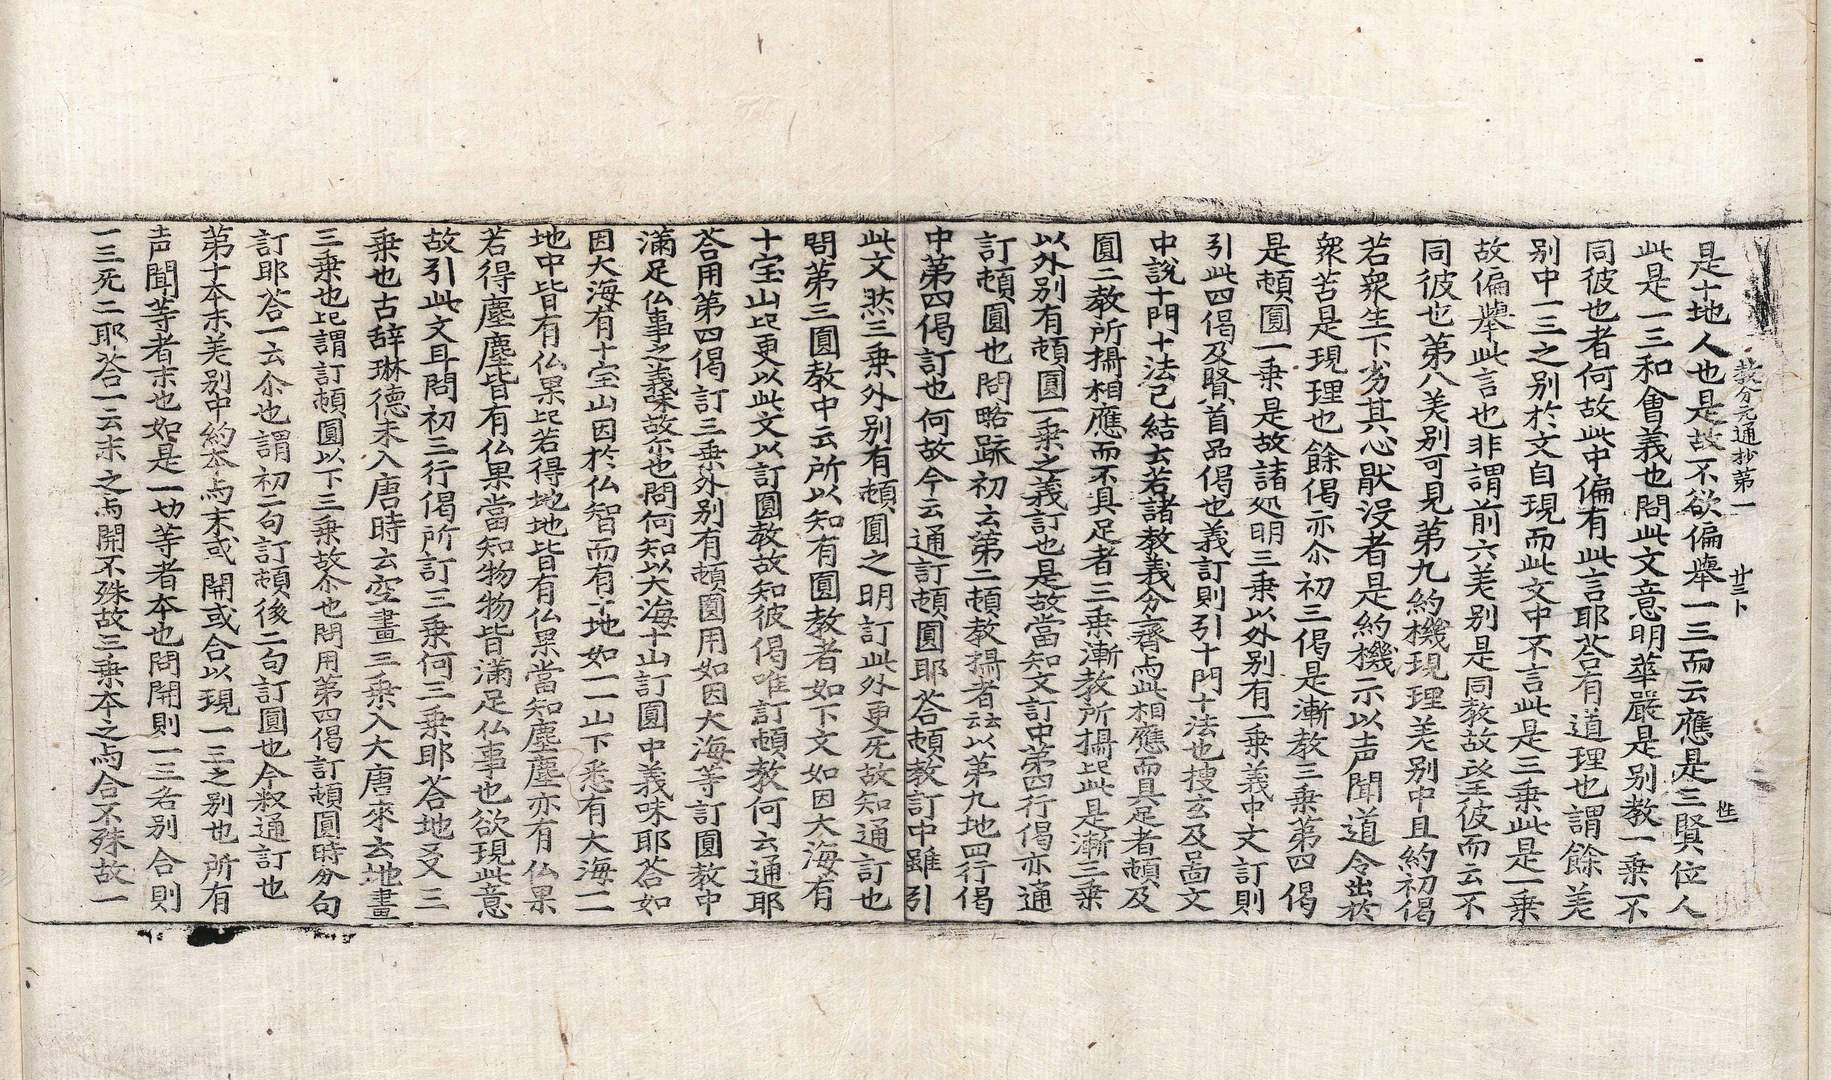 教分元通抄第一　廿三卜　性
是十地人也是故不欲偏擧一三而云應是三賢位人
此是一三和會義也問此文意明華嚴是别教一乗不
同彼也者何故此中偏有此言耶荅有道理也謂餘差
别中一三之别於文自現而此文中不言此是三乗此是一乗
故偏擧此言也非謂前六差别是同教故望彼而云不
同彼也第八差别可見第九約機現理差别中且約初偈
若衆生下劣其心厭没者是約機示以声聞道令出於
衆苦是現理也餘偈亦尒初三偈是漸教三乗第四偈
是頓圓一乗是故諸処明三乗以外别有一乗義中文訂則
引此四偈及賢首品偈也義訂則引十門十法也搜玄及啚文
中說十門十法已結云若諸教義分齊与此相應而具足者頓及
圓二教所攝相應而不具足者三乗漸教所攝比此是漸三乗
以外别有頓圓一乗之義訂也是故當知文訂中第四行偈亦通
訂頓圓也問略䟽初云第二頓教攝者云云以第九地四行偈
中第四偈訂也何故今云通訂頓圓耶荅頓教訂中雖引
此文然三乗外别有頓圓之明訂此外更无故知通訂也
問第三圓教中云所以知有圓教者如下文如因大海有
十宝山比更以此文以訂圓教故知彼偈唯訂頓教何云通耶
荅用第四偈訂三乗外别有頓圓用如因大海等訂圓教中
滿足仏事之義味故尒也問何知以大海十山訂圓中義味耶荅如
因大海有十宝山因於仏智而有十地如一一山下悉有大海一一
地中皆有仏果比若得地地皆有仏果當知塵塵亦有仏果
若得塵塵皆有仏果當知物物皆滿足仏事也欲現此意
故引此文耳問初三行偈所訂三乗何三乗耶荅地爻三
乗也古辞琳德未入唐時云空畫三乗入大唐來云地畫
三乗也比謂訂頓圓以下三乗故尒也問用第四偈訂頓圓時分句
訂耶荅一云尒也謂初二句訂頓後二句訂圓也今釈通訂也
第十本末差别中約本与末或開或合以現一三之别也所有
声聞等者末也如是一切等者本也問開則一三各别合則
一三死二耶荅一云末之与開不殊故三乗本之与合不殊故一